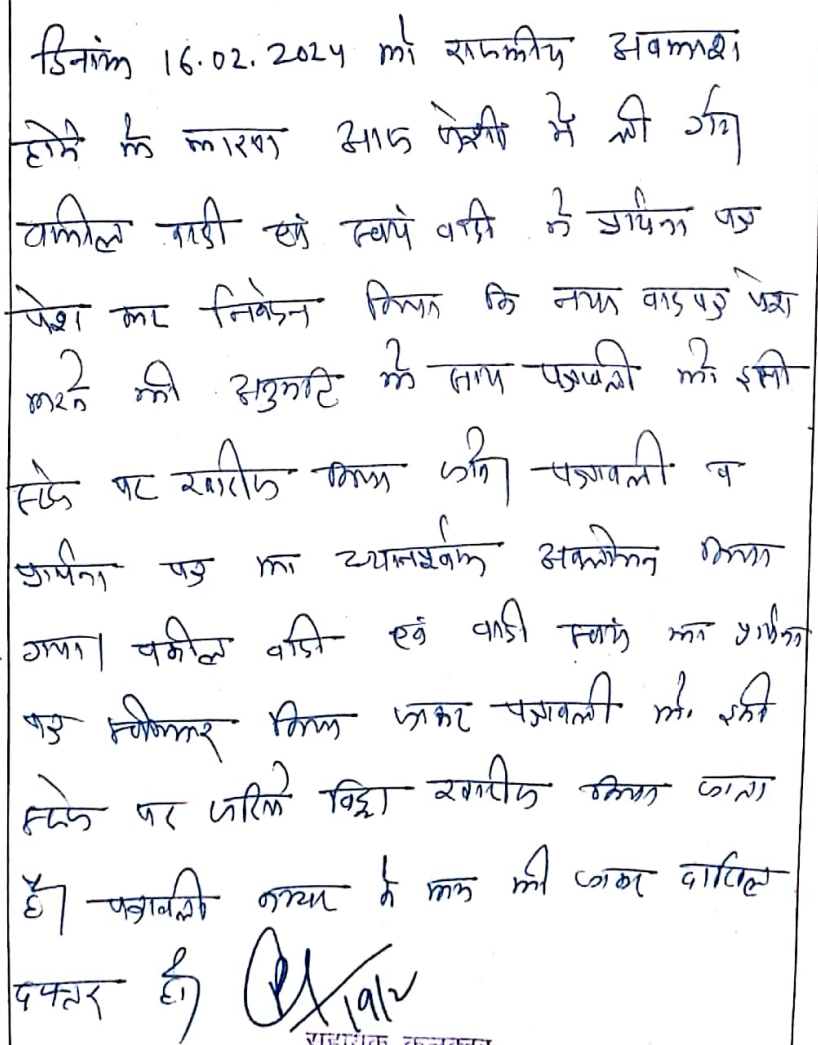 दिनांक 16.02.2024 को राजकीय अवकाश
होने के कारण आज पेशी में ली गई।
वकील वादी एवं स्वयं वादी ने प्रार्थना पत्र
पेश कर निवेदन किया कि नया वाद पत्र पेश
करने की अनुमति के साथ पत्रावली को इसी
स्टेज पर खारीज किया जावे। पत्रावली व
प्रार्थना पत्र का ध्यानपूर्वक अवलोकन किया
गया। वकील वादी एवं वादी स्वयं का प्रार्थना
पत्र स्वीकार किया जाकर पत्रावली को इसी
स्टेज पर जरिये विड्रा खारीज किया जाता
है। पत्रावली नम्बर से कम की जाकर दाखिल
दफ्तर हो।
19/2
सहायक कलक्टर